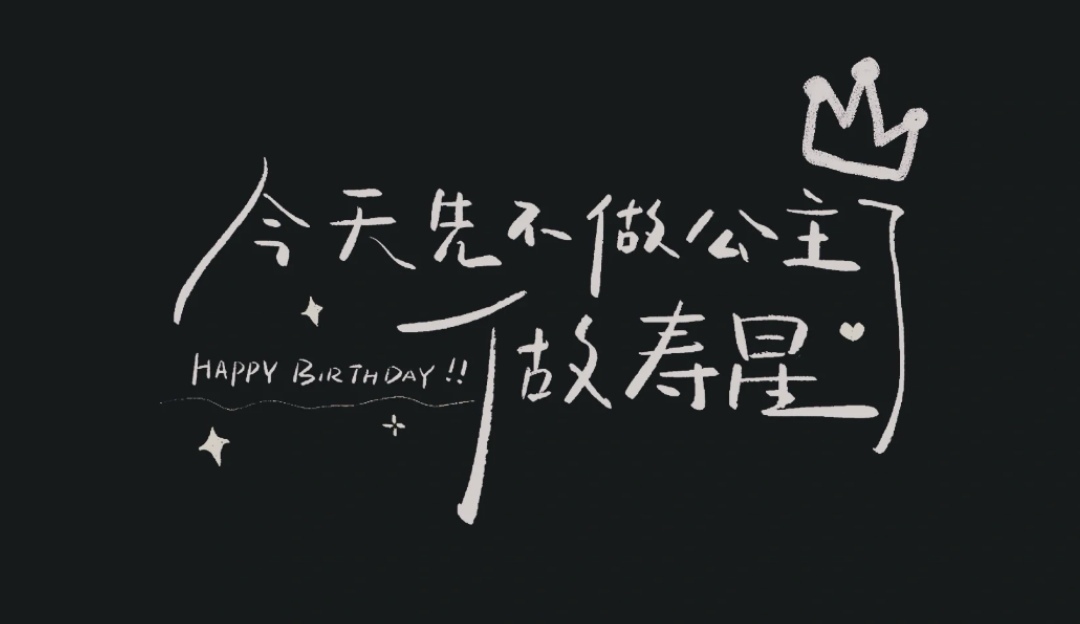 今天先不做公主了
做寿星
HAPPY BIRTHDAY !!